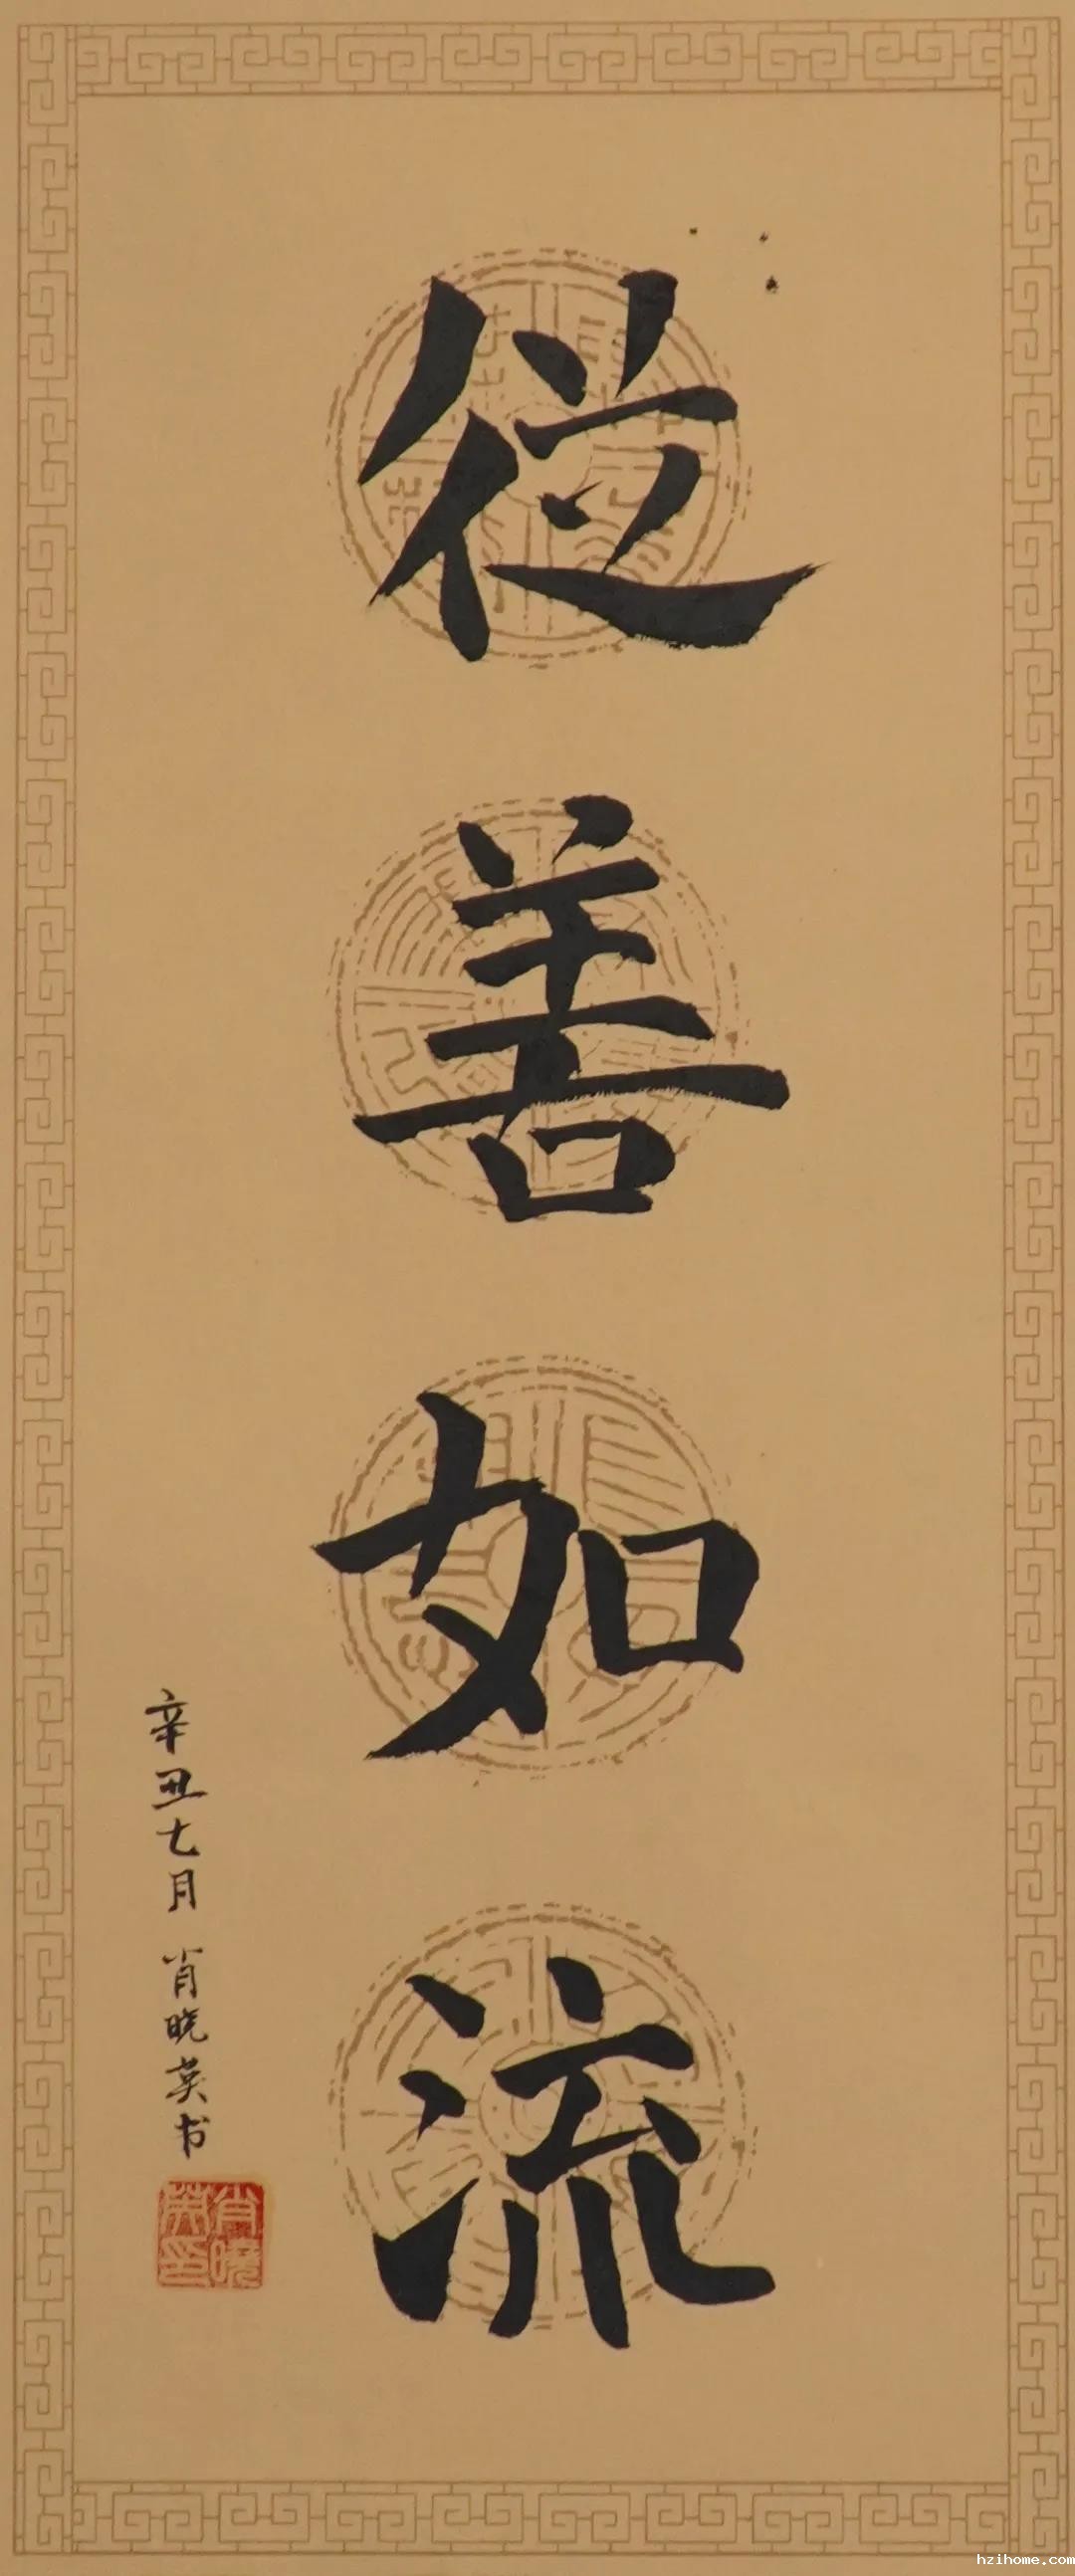 從善如流
辛丑七月 肖晓英书
肖曉英印
hzihome.com